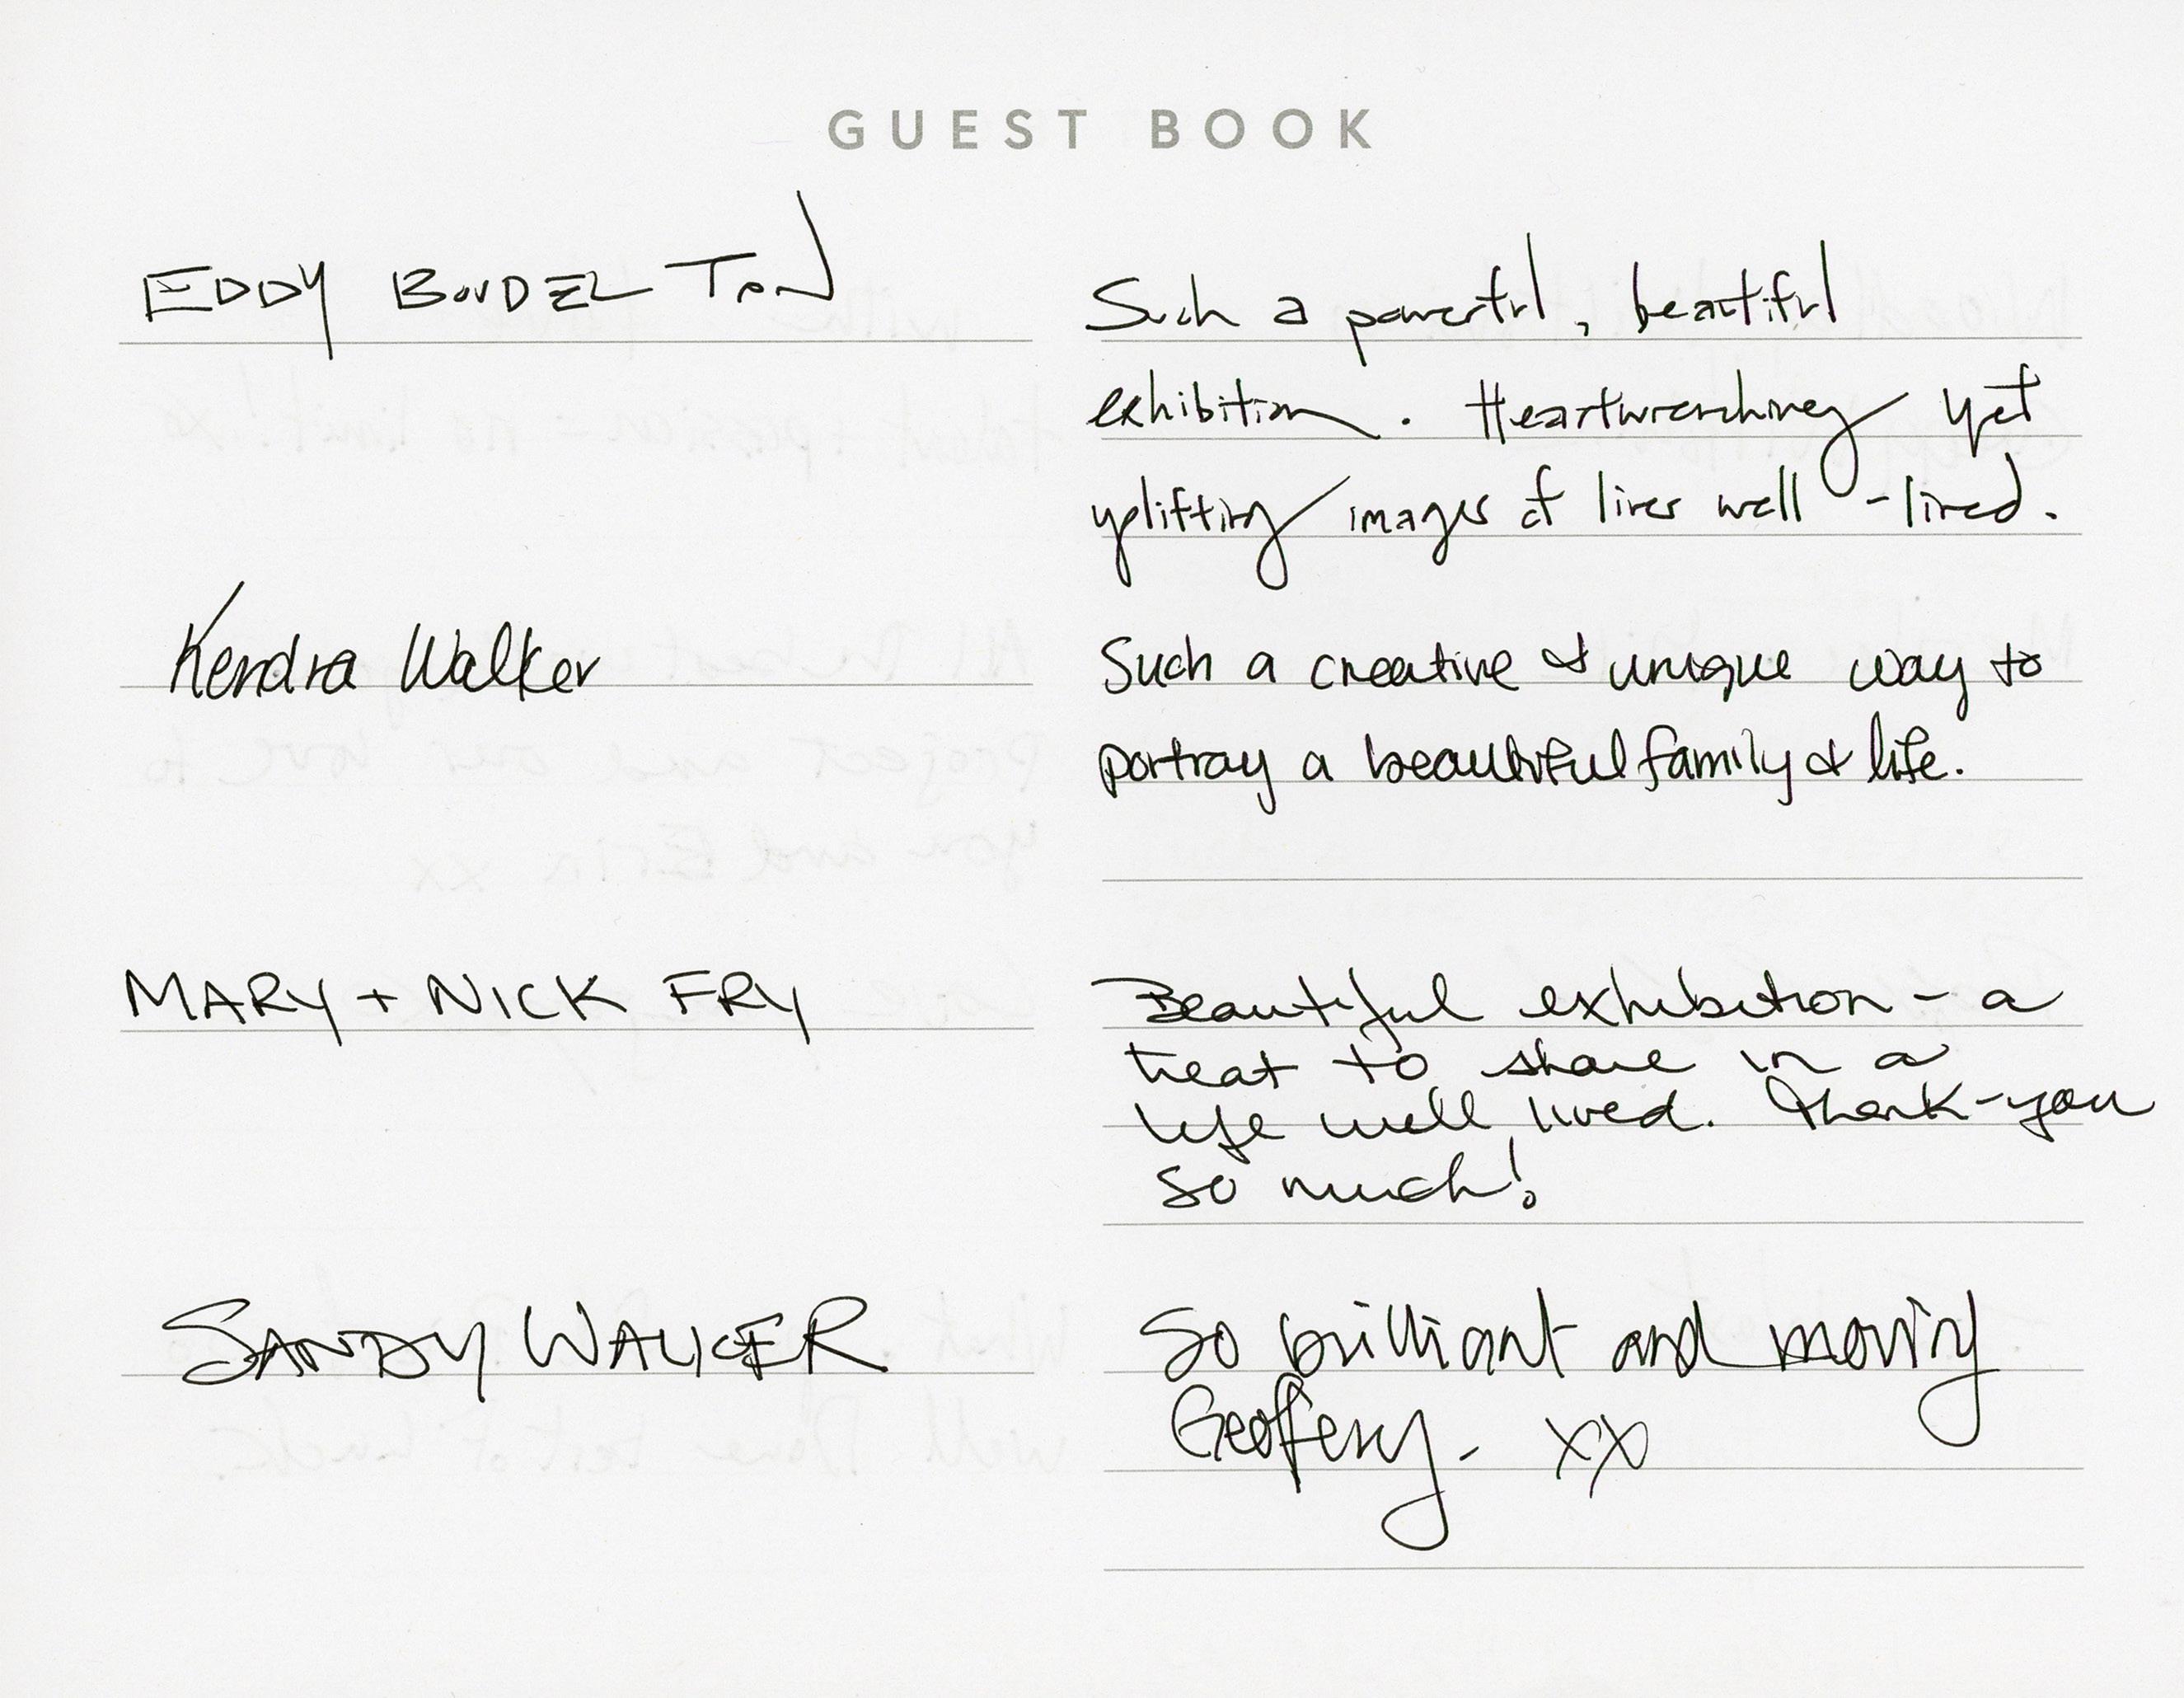 GUEST BOOK
EDDY BOUDEL TAN
Such a powerful, beautiful
exhibition. Heartwrenching yet
uplifting images of lives well-lived.
Kendra Walker
Such a creative & unique way to
portray a beautiful family & life.
MARY + NICK FRY
Beautiful exhibition - a
treat to share in a
life well lived. Thank-you
so much!
SANDY WALKER
So brilliant and moving
Geoffery - xx